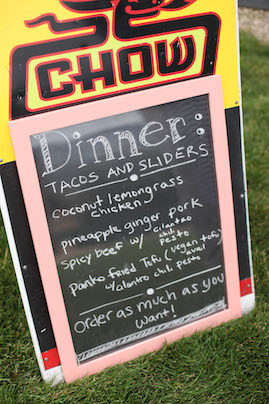 CHOW
Dinner:
TACOS AND SLIDERS
coconut lemongrass
chicken
pineapple ginger pork
spicy beef w/ cilantro
chili
pesto
panko fried Tofu (vegan tofu)
w/ cilantro chili pesto
Order as much as you
want!